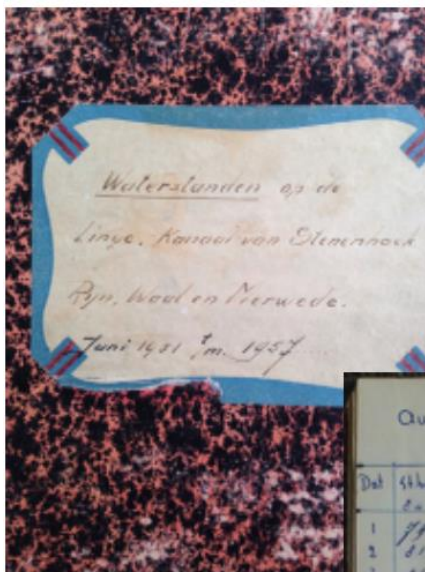 Waterstanden op de
Linge, Kanaal van Steenenhoek
Rijn, Waal en Merwede.
Juni 1951 t/m. 1957
Dat
1
2